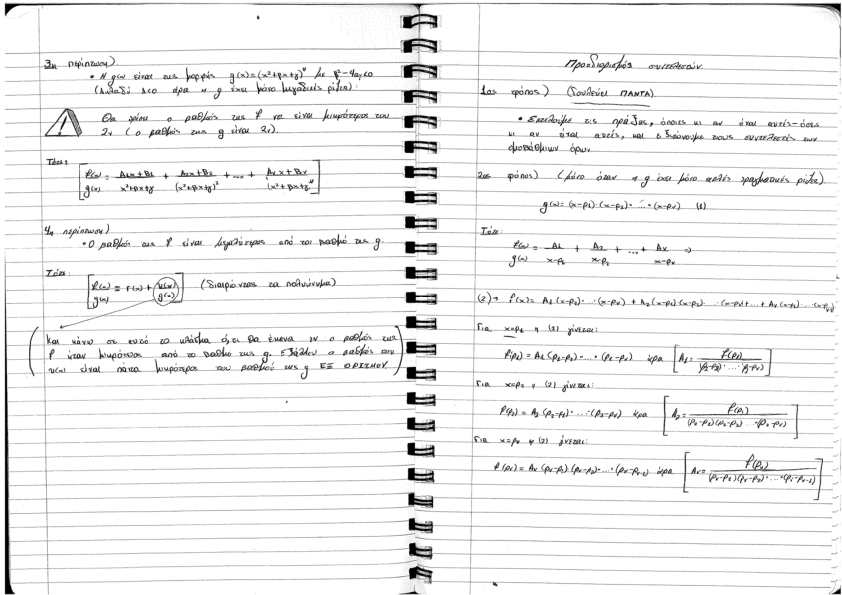 3η περίπτωση)
• Η g(x) είναι της μορφής g(x)=(x²+βx+γ)^ν με β²-4αγ<0
(Δηλαδή Δ<0 άρα η g έχει μόνο μιγαδικές ρίζες).
Θα πρέπει ο βαθμός της φ να είναι μικρότερος του
2ν (ο βαθμός της g είναι 2ν).
Τότε:
φ(x)/g(x) = (A₁x+B₁)/(x²+βx+γ) + (A₂x+B₂)/(x²+βx+γ)² + .... + (Aνx+Bν)/(x²+βx+γ)^ν
4η περίπτωση)
• Ο βαθμός της φ είναι μεγαλύτερος από τον βαθμό της g.
Τότε:
φ(x)/g(x) = π(x) + υ(x)/g(x) (διαιρώντας τα πολυώνυμα)
Και κάνω σε αυτό το κλάσμα ό,τι θα έκανα αν ο βαθμός της
φ ήταν μικρότερος από το βαθμό της g. Εξάλλου ο βαθμός του
υ(x) είναι πάντα μικρότερος του βαθμού της g ΕΞ ΟΡΙΣΜΟΥ.
Προσδιορισμός συντελεστών.
1ος τρόπος) (δουλεύει ΠΑΝΤΑ).
• Εκτελούμε τις πράξεις, όποιες κι αν είναι αυτές-όσες
κι αν είναι αυτές, και εξισώνουμε τους συντελεστές των
ομοβάθμιων όρων.
2ος τρόπος) (μόνο όταν η g έχει μόνο απλές πραγματικές ρίζες).
g(x)=(x-ρ₁)·(x-ρ₂)·...·(x-ρν) (1)
Τότε:
φ(x)/g(x) = A₁/(x-ρ₁) + A₂/(x-ρ₂) + ... + Aν/(x-ρν) ⇒
(2)→ φ(x)= A₁(x-ρ₂)·...·(x-ρν) + A₂(x-ρ₁)(x-ρ₃)·...·(x-ρν)+...+ Aν(x-ρ₁)·...·(x-ρν₋₁)
Για x=ρ₁ η (2) γίνεται:
φ(ρ₁)= A₁(ρ₁-ρ₂)·...·(ρ₁-ρν) άρα A₁= φ(ρ₁)/((ρ₁-ρ₂)·...·(ρ₁-ρν))
Για x=ρ₂ η (2) γίνεται:
φ(ρ₂)= A₂(ρ₂-ρ₁)·...·(ρ₂-ρν) άρα A₂= φ(ρ₂)/((ρ₂-ρ₁)(ρ₂-ρ₃)...(ρ₂-ρν))
Για x=ρν η (2) γίνεται:
φ(ρν)= Aν(ρν-ρ₁)(ρν-ρ₂)·...·(ρν-ρν₋₁) άρα Aν= φ(ρν)/((ρν-ρ₁)(ρν-ρ₂)·...·(ρν-ρν₋₁))